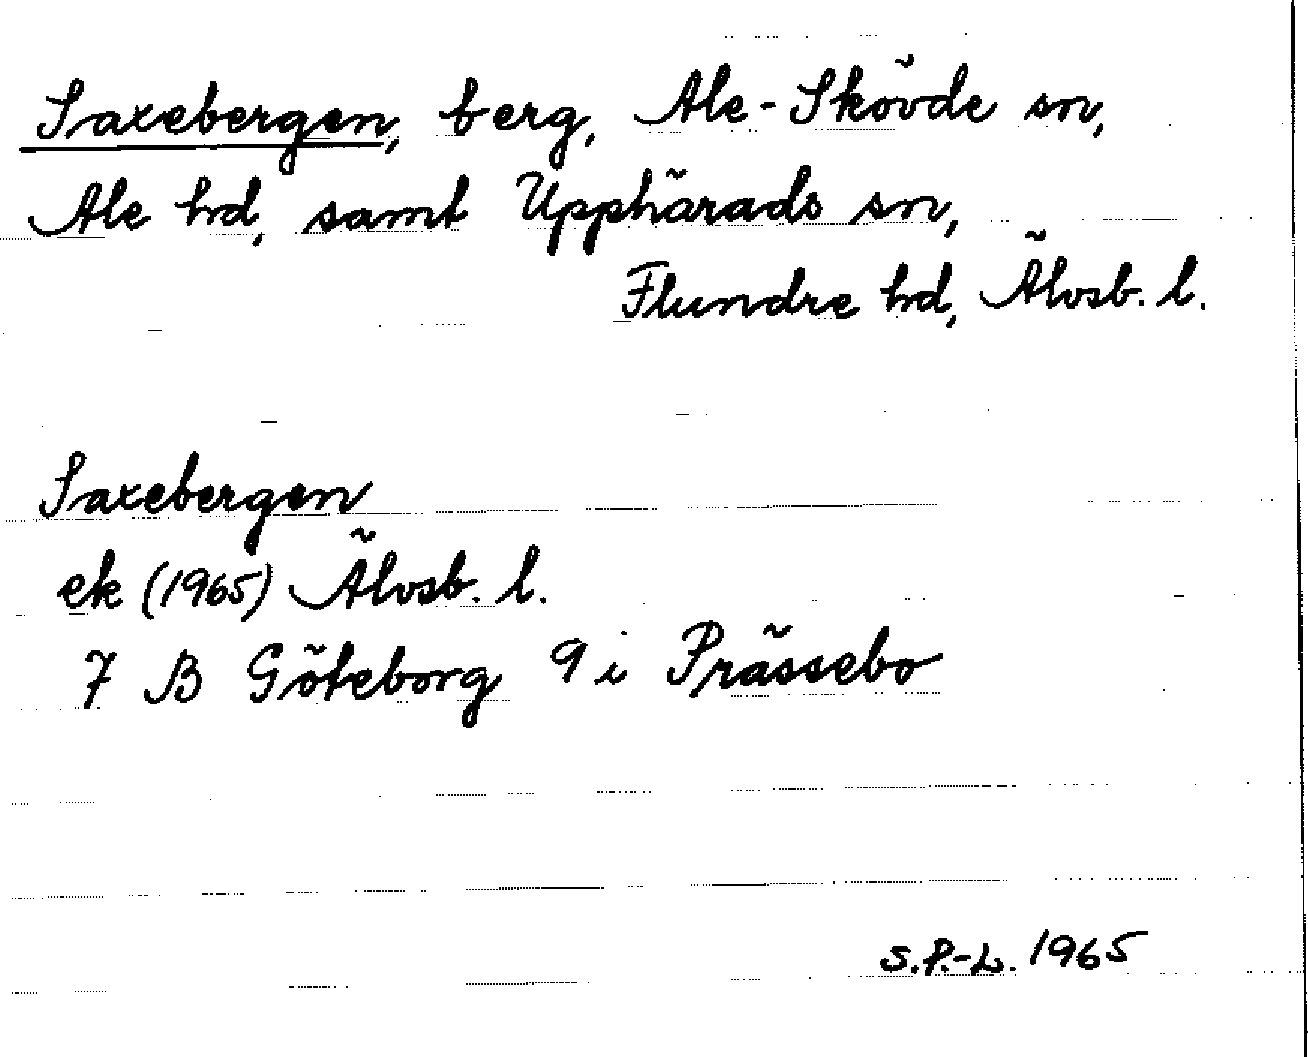 Saxebergen, berg, Ale-Skövde sn,
Ale hd, samt Upphärads sn,
Flundre hd, Älvsb. l.
Saxebergen
ek (1965) Älvsb. l.
7 B Göteborg 9 i Prässebo
S.P.-L. 1965